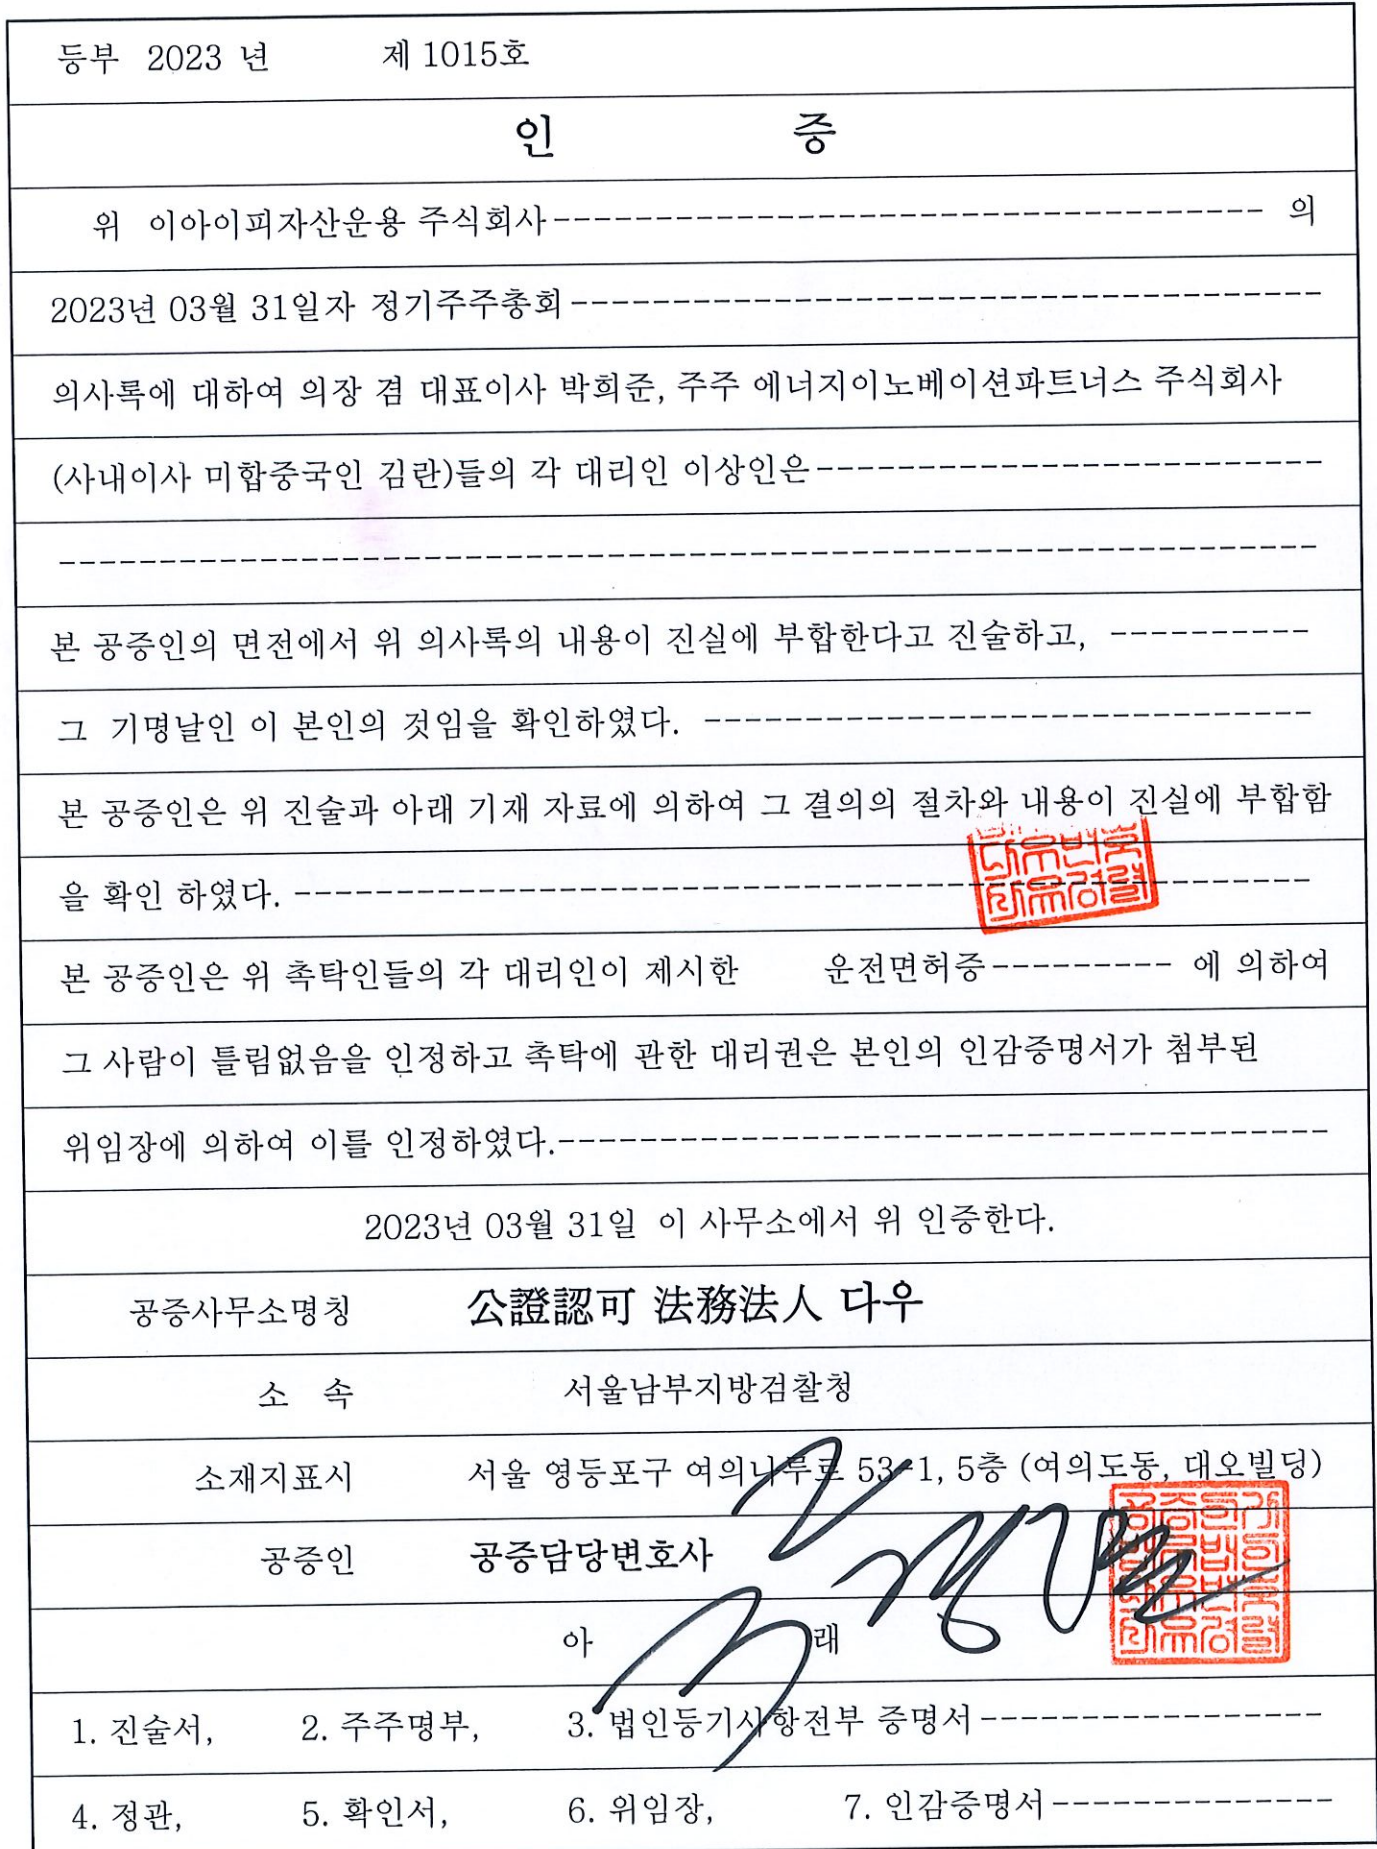 등부 2023 년 제 1015호
인 증
위 이아이피자산운용 주식회사----------------------------------- 의
2023년 03월 31일자 정기주주총회-------------------------------------
의사록에 대하여 의장 겸 대표이사 박희준, 주주 에너지이노베이션파트너스 주식회사
(사내이사 미합중국인 김란)들의 각 대리인 이상인은-------------------------
--------------------------------------------------------------
본 공증인의 면전에서 위 의사록의 내용이 진실에 부합한다고 진술하고, ----------
그 기명날인 이 본인의 것임을 확인하였다. ------------------------------
본 공증인은 위 진술과 아래 기재 자료에 의하여 그 결의의 절차와 내용이 진실에 부합함
을 확인 하였다. --------------------------------------------------
본 공증인은 위 촉탁인들의 각 대리인이 제시한 운전면허증--------- 에 의하여
그 사람이 틀림없음을 인정하고 촉탁에 관한 대리권은 본인의 인감증명서가 첨부된
위임장에 의하여 이를 인정하였다.--------------------------------------
2023년 03월 31일 이 사무소에서 위 인증한다.
공증사무소명칭 公證認可 法務法人 다우
소 속 서울남부지방검찰청
소재지표시 서울 영등포구 여의나루로 53-1, 5층 (여의도동, 대오빌딩)
공증인 공증담당변호사
아 래
1. 진술서, 2. 주주명부, 3. 법인등기사항전부 증명서-----------------
4. 정관, 5. 확인서, 6. 위임장, 7. 인감증명서--------------